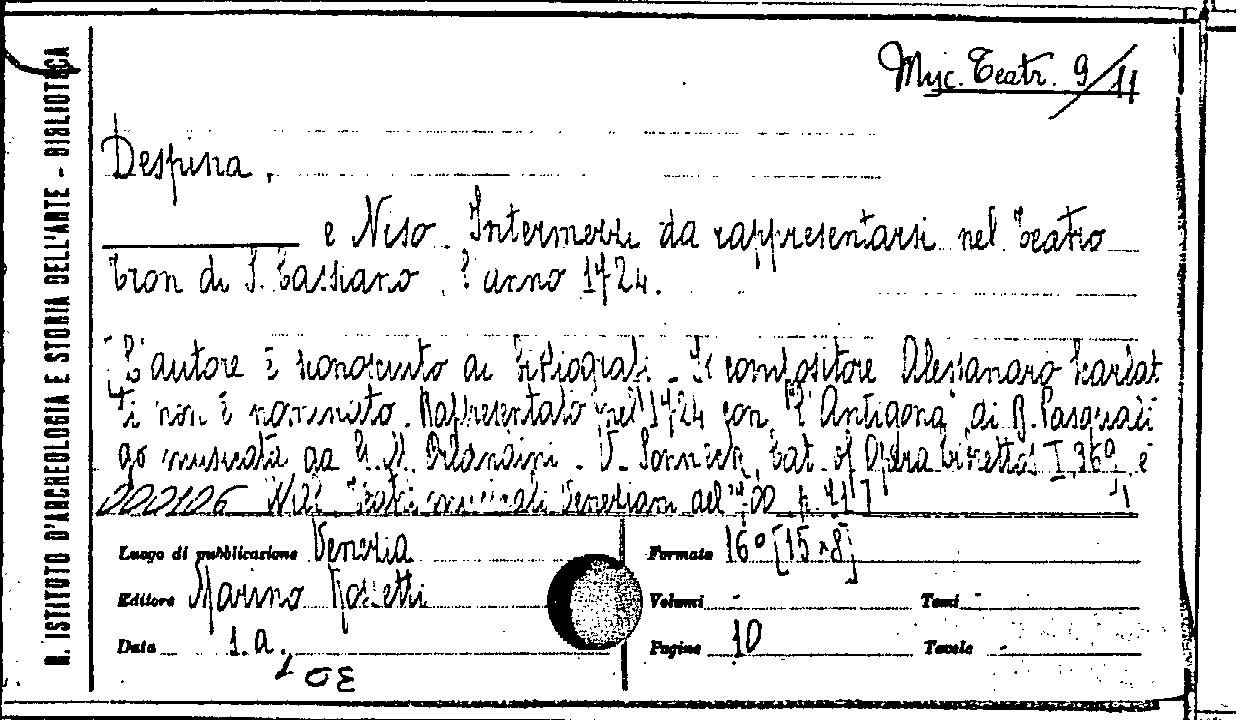 R. ISTITUTO D'ARCHEOLOGIA E STORIA DELL'ARTE - BIBLIOTECA
Misc. Teatr. 9/11
Despina,
e Niso. Intermezzi da rappresentarsi nel Teatro
Tron di S. Cassiano, l'anno 1724.
[L'autore è sconosciuto ai bibliografi. Il compositore Alessandro Scarlat
ti non è nominato. Rappresentato nel 1724 con "l'Antigona" di B. Pasquali
go musicata da G. M. Orlandini. V. Sonneck, Cat. of Opera librettos I, 369 e
000106 Wiel Teatri musicali Veneziani del '700 p.
Luogo di pubblicazione Venezia
Formato 16° [15x8]
Editore Marino Rossetti
Volumi -
Tomi -
Data s.a.
Pagine 10
Tavole -